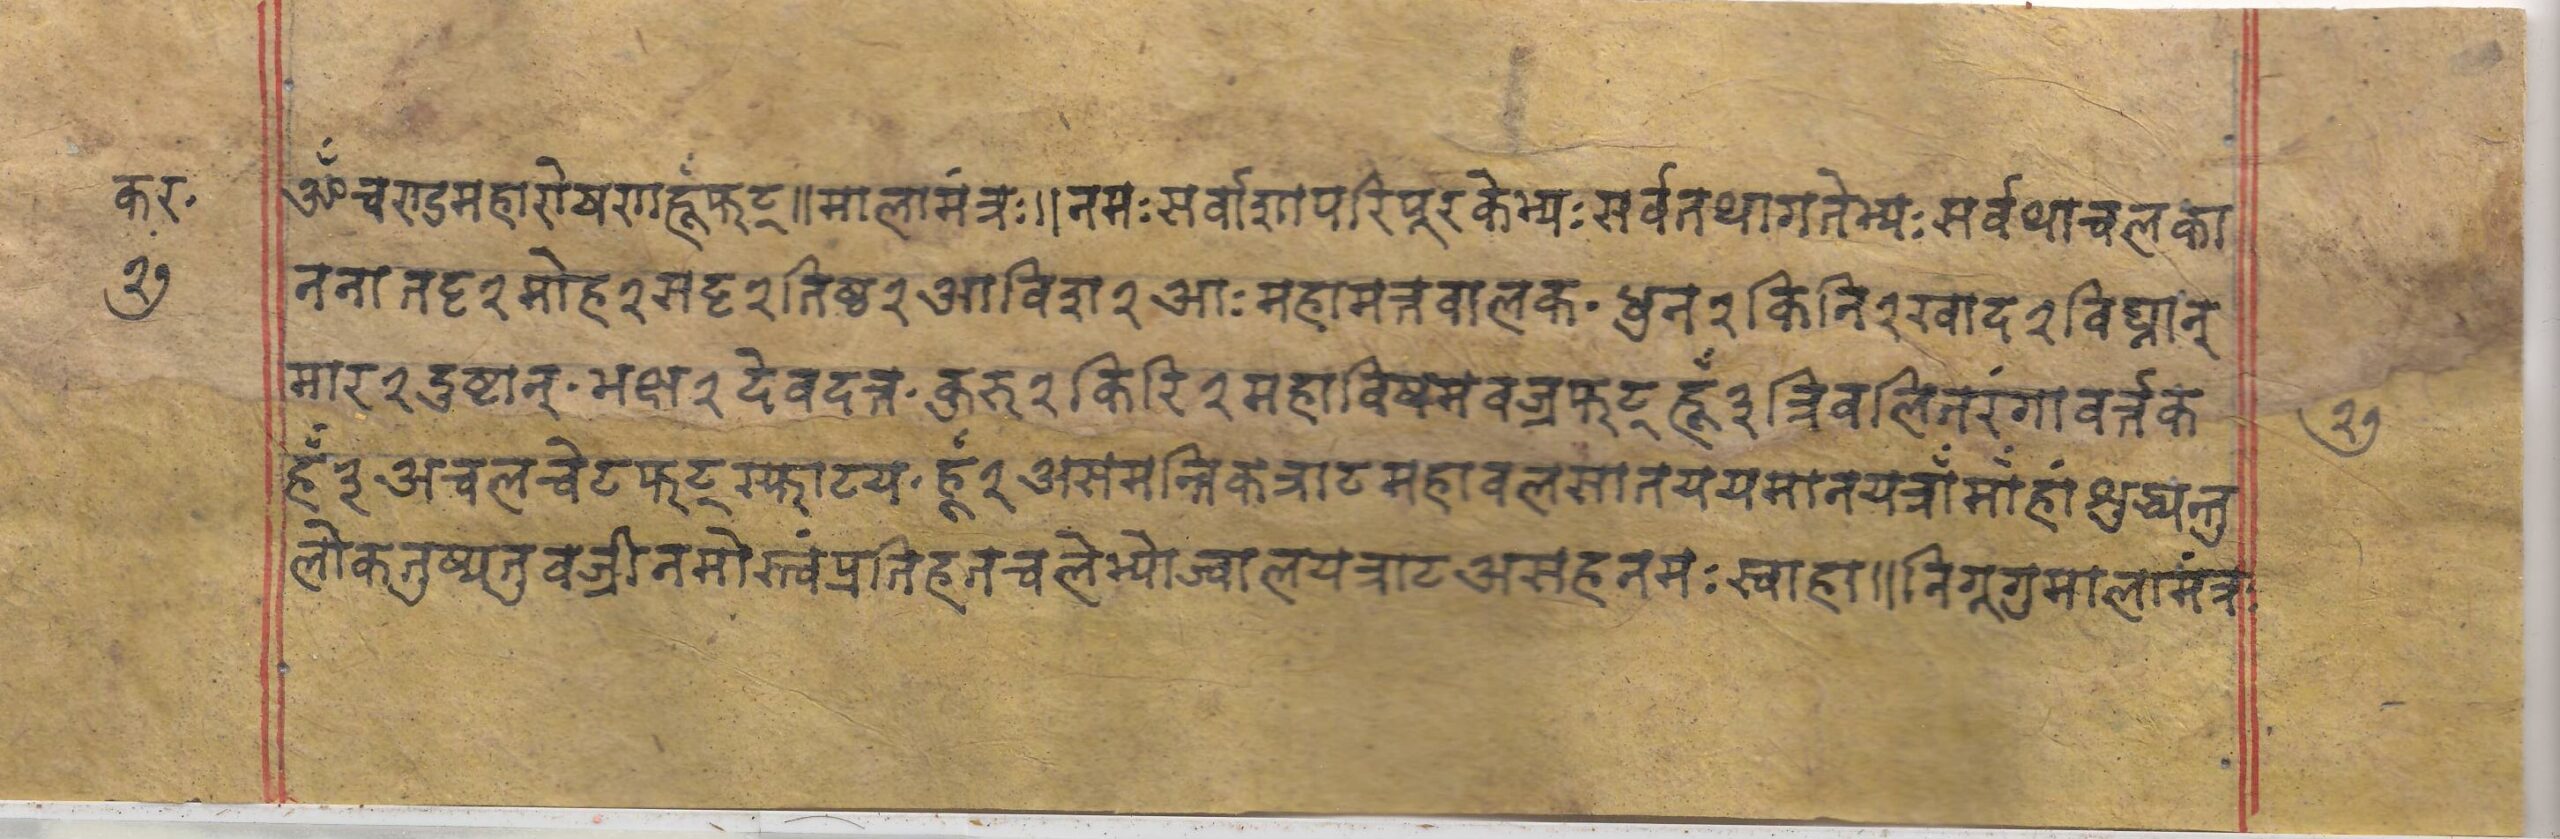 कर॰ ॐचण्डमहारोषणहूँफट्॥मालामंत्रः॥नमःसर्वाशापरिपूरकेभ्यःसर्वतथागतेभ्यःसर्वथाचलका
२७ ननातट्ट२मोह२सट्ट२तिष्ठ२आविश२आःमहामत्तवालक॰धुन२किनि२खाद२विघ्नान्
मार२दुष्टान्॰भक्ष२देवदत्त॰कुरु२किरि२महाविषमवज्रफट्हूँ३त्रिवलितरंगावर्त्तक २७
हूँ३अचलचेटफट्स्फाटय॰हूँ२असमन्त्रिकत्राटमहावलसातययमानयत्राँमाँहांशुद्ध्यन्तु
लोकतुष्यतुवज्रीनमोस्त्वंप्रतिहतचलेभ्योज्वालयत्राटअसहनमःस्वाहा॥निगूगुमालामंत्रः